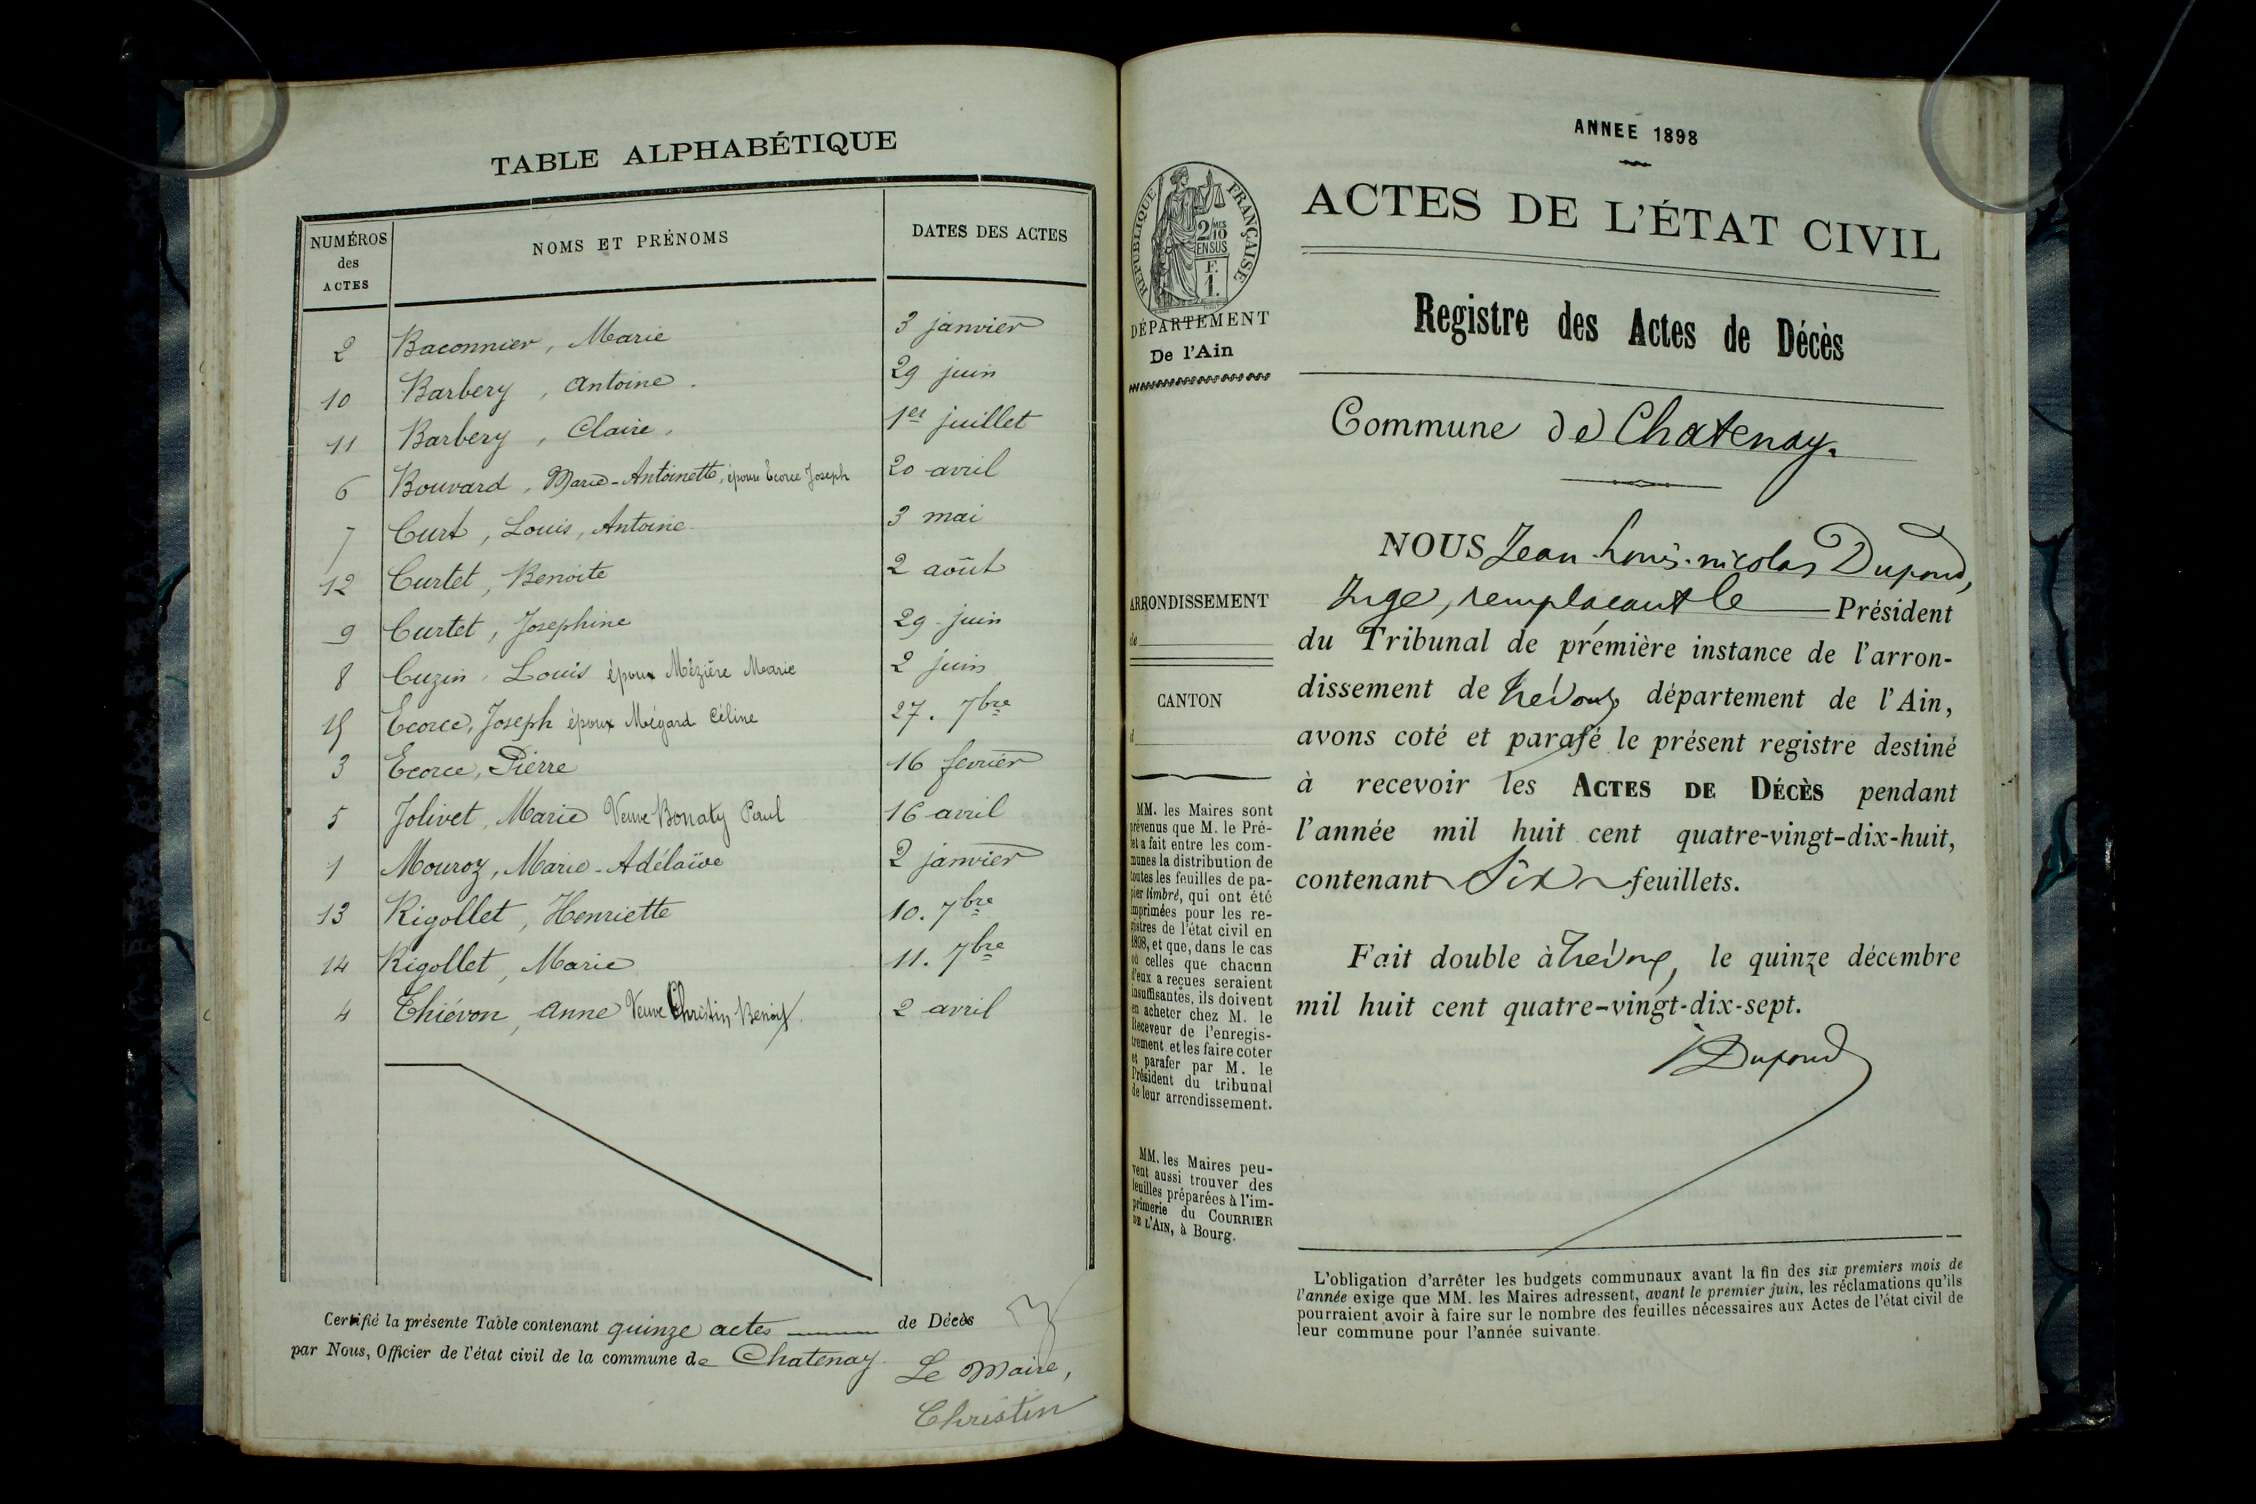 TABLE ALPHABÉTIQUE
NUMÉROS des ACTES NOMS ET PRÉNOMS DATES DES ACTES
2 Baconnier, Marie 3 janvier
10 Barbery, Antoine. 29 juin
11 Barbery, Claire, 1er juillet
6 Bouvard, Marie-Antoinette, épouse Ecorce Joseph 20 avril
7 Curt, Louis, Antoine 3 mai
12 Curtet, Benoite 2 août
9 Curtet, Josephine 29 juin
8 Cuzin, Louis époux Mézière Marie 2 juin
15 Ecorce, Joseph époux Mégard Céline 27. 7bre
3 Ecorce, Pierre 16 fevrier
5 Jolivet, Marie Veuve Bonaty Paul 16 avril
1 Mouroz, Marie-Adélaïde 2 janvier
13 Rigollet, Henriette 10. 7bre
14 Rigollet, Marie 11. 7bre
4 Thiévon, Anne Veuve Christin Benoit 2 avril
Certifié la présente Table contenant quinze actes de Décès
par Nous, Officier de l'état civil de la commune de Chatenay
Le Maire,
Christin
ANNEE 1898
RÉPUBLIQUE FRANÇAISE
2/10 MES
EN SUS
F.
1.
ACTES DE L'ÉTAT CIVIL
DÉPARTEMENT
De l'Ain
Registre des Actes de Décès
Commune de Chatenay.
ARRONDISSEMENT
de
CANTON
d
MM. les Maires sont
prévenus que M. le Pré-
fet a fait entre les com-
munes la distribution de
toutes les feuilles de pa-
pier timbré, qui ont été
imprimées pour les re-
gistres de l'état civil en
1898, et que, dans le cas
où celles que chacun
d'eux a reçues seraient
insuffisantes, ils doivent
en acheter chez M. le
Receveur de l'enregis-
trement et les faire coter
et parafer par M. le
Président du tribunal
de leur arrondissement.
MM. les Maires peu-
vent aussi trouver des
feuilles préparées à l'im-
primerie du COURRIER
DE L'AIN, à Bourg.
NOUS Jean Louis nicolas Dupond,
Juge, remplacant le Président
du Tribunal de première instance de l'arron-
dissement de Trévoux département de l'Ain,
avons coté et parafé le présent registre destiné
à recevoir les ACTES DE DÉCÈS pendant
l'année mil huit cent quatre-vingt-dix-huit,
contenant Six feuillets.
Fait double à Trévoux, le quinze décembre
mil huit cent quatre-vingt-dix-sept.
Dupond
L'obligation d'arrêter les budgets communaux avant la fin des six premiers mois de
l'année exige que MM. les Maires adressent, avant le premier juin, les réclamations qu'ils
pourraient avoir à faire sur le nombre des feuilles nécessaires aux Actes de l'état civil de
leur commune pour l'année suivante.